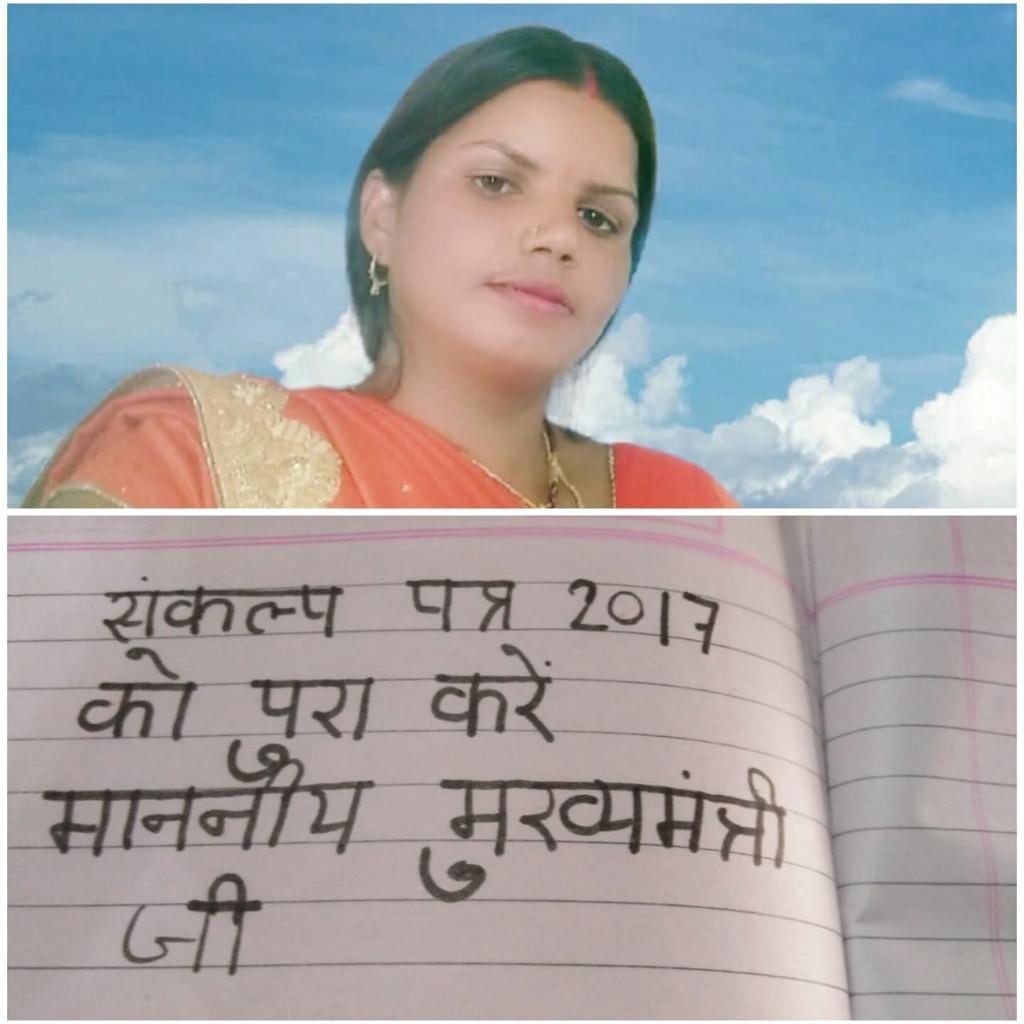 संकल्प पत्र 2017
को पुरा करें
माननीय मुख्यमंत्री
जी